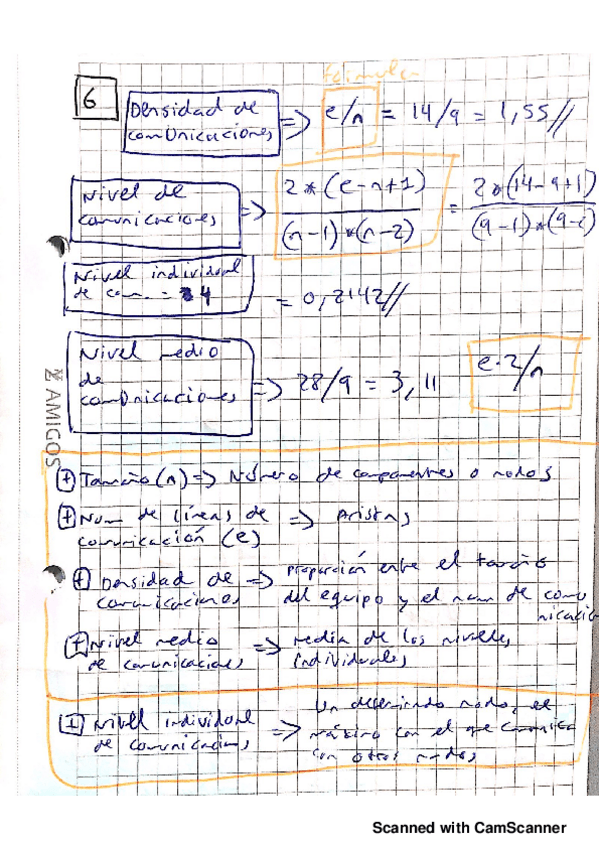 fórmula
6
Densidad de
comunicaciones
=> e/n = 14/9 = 1,55//
Nivel de
comunicaciones
=> 2*(e-n+1) / (n-1)*(n-2) = 2*(14-9+1) / (9-1)*(9-2)
Nivel individual
de com. = 4
= 0,2142//
Nivel medio
de
comunicaciones
=> 28/9 = 3,11
e·2/n
AMIGOS
+ Tamaño (n) => Número de componentes o nodos
+ Num de líneas de => Aristas
comunicación (e)
+ Densidad de => proporción entre el tamaño
comunicaciones del equipo y el num de comunicacio
+ Nivel medio => media de los niveles
de comunicaciones individuales
+ Nivel individual => Un determinado nodo, el
de comunicaciones máximo con el que comunica
con otros nodos
Scanned with CamScanner